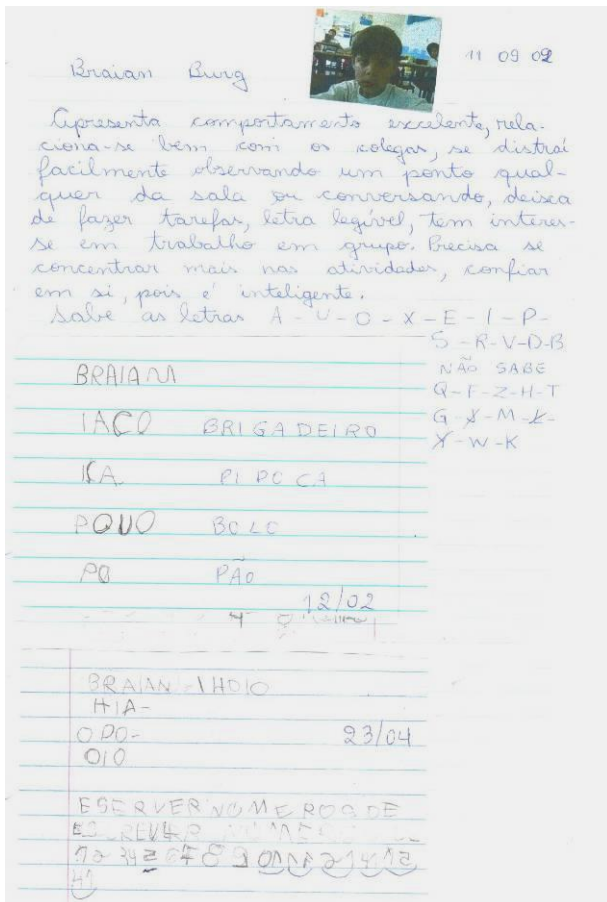 11 09 02
Braian Burg
Apresenta comportamento excelente, rela-
ciona-se bem com os colegas, se distrai
facilmente observando um ponto qual-
quer da sala ou conversando, deixa
de fazer tarefas, letra legível, tem interes-
se em trabalho em grupo. Precisa se
concentrar mais nas atividades, confiar
em si, pois é inteligente.
Sabe as letras A - U - O - X - E - I - P -
S - R - V - D - B
NÃO SABE
Q - F - Z - H - T
G - M -
W - K
BRAIAN
IACO BRIGADEIRO
KA PIPOCA
POUO BOLO
PO PÃO
12/02
BRAIAN - IHOIO
HIA-
OPO- 23/04
OIO
ESERVER NOMEROS DE